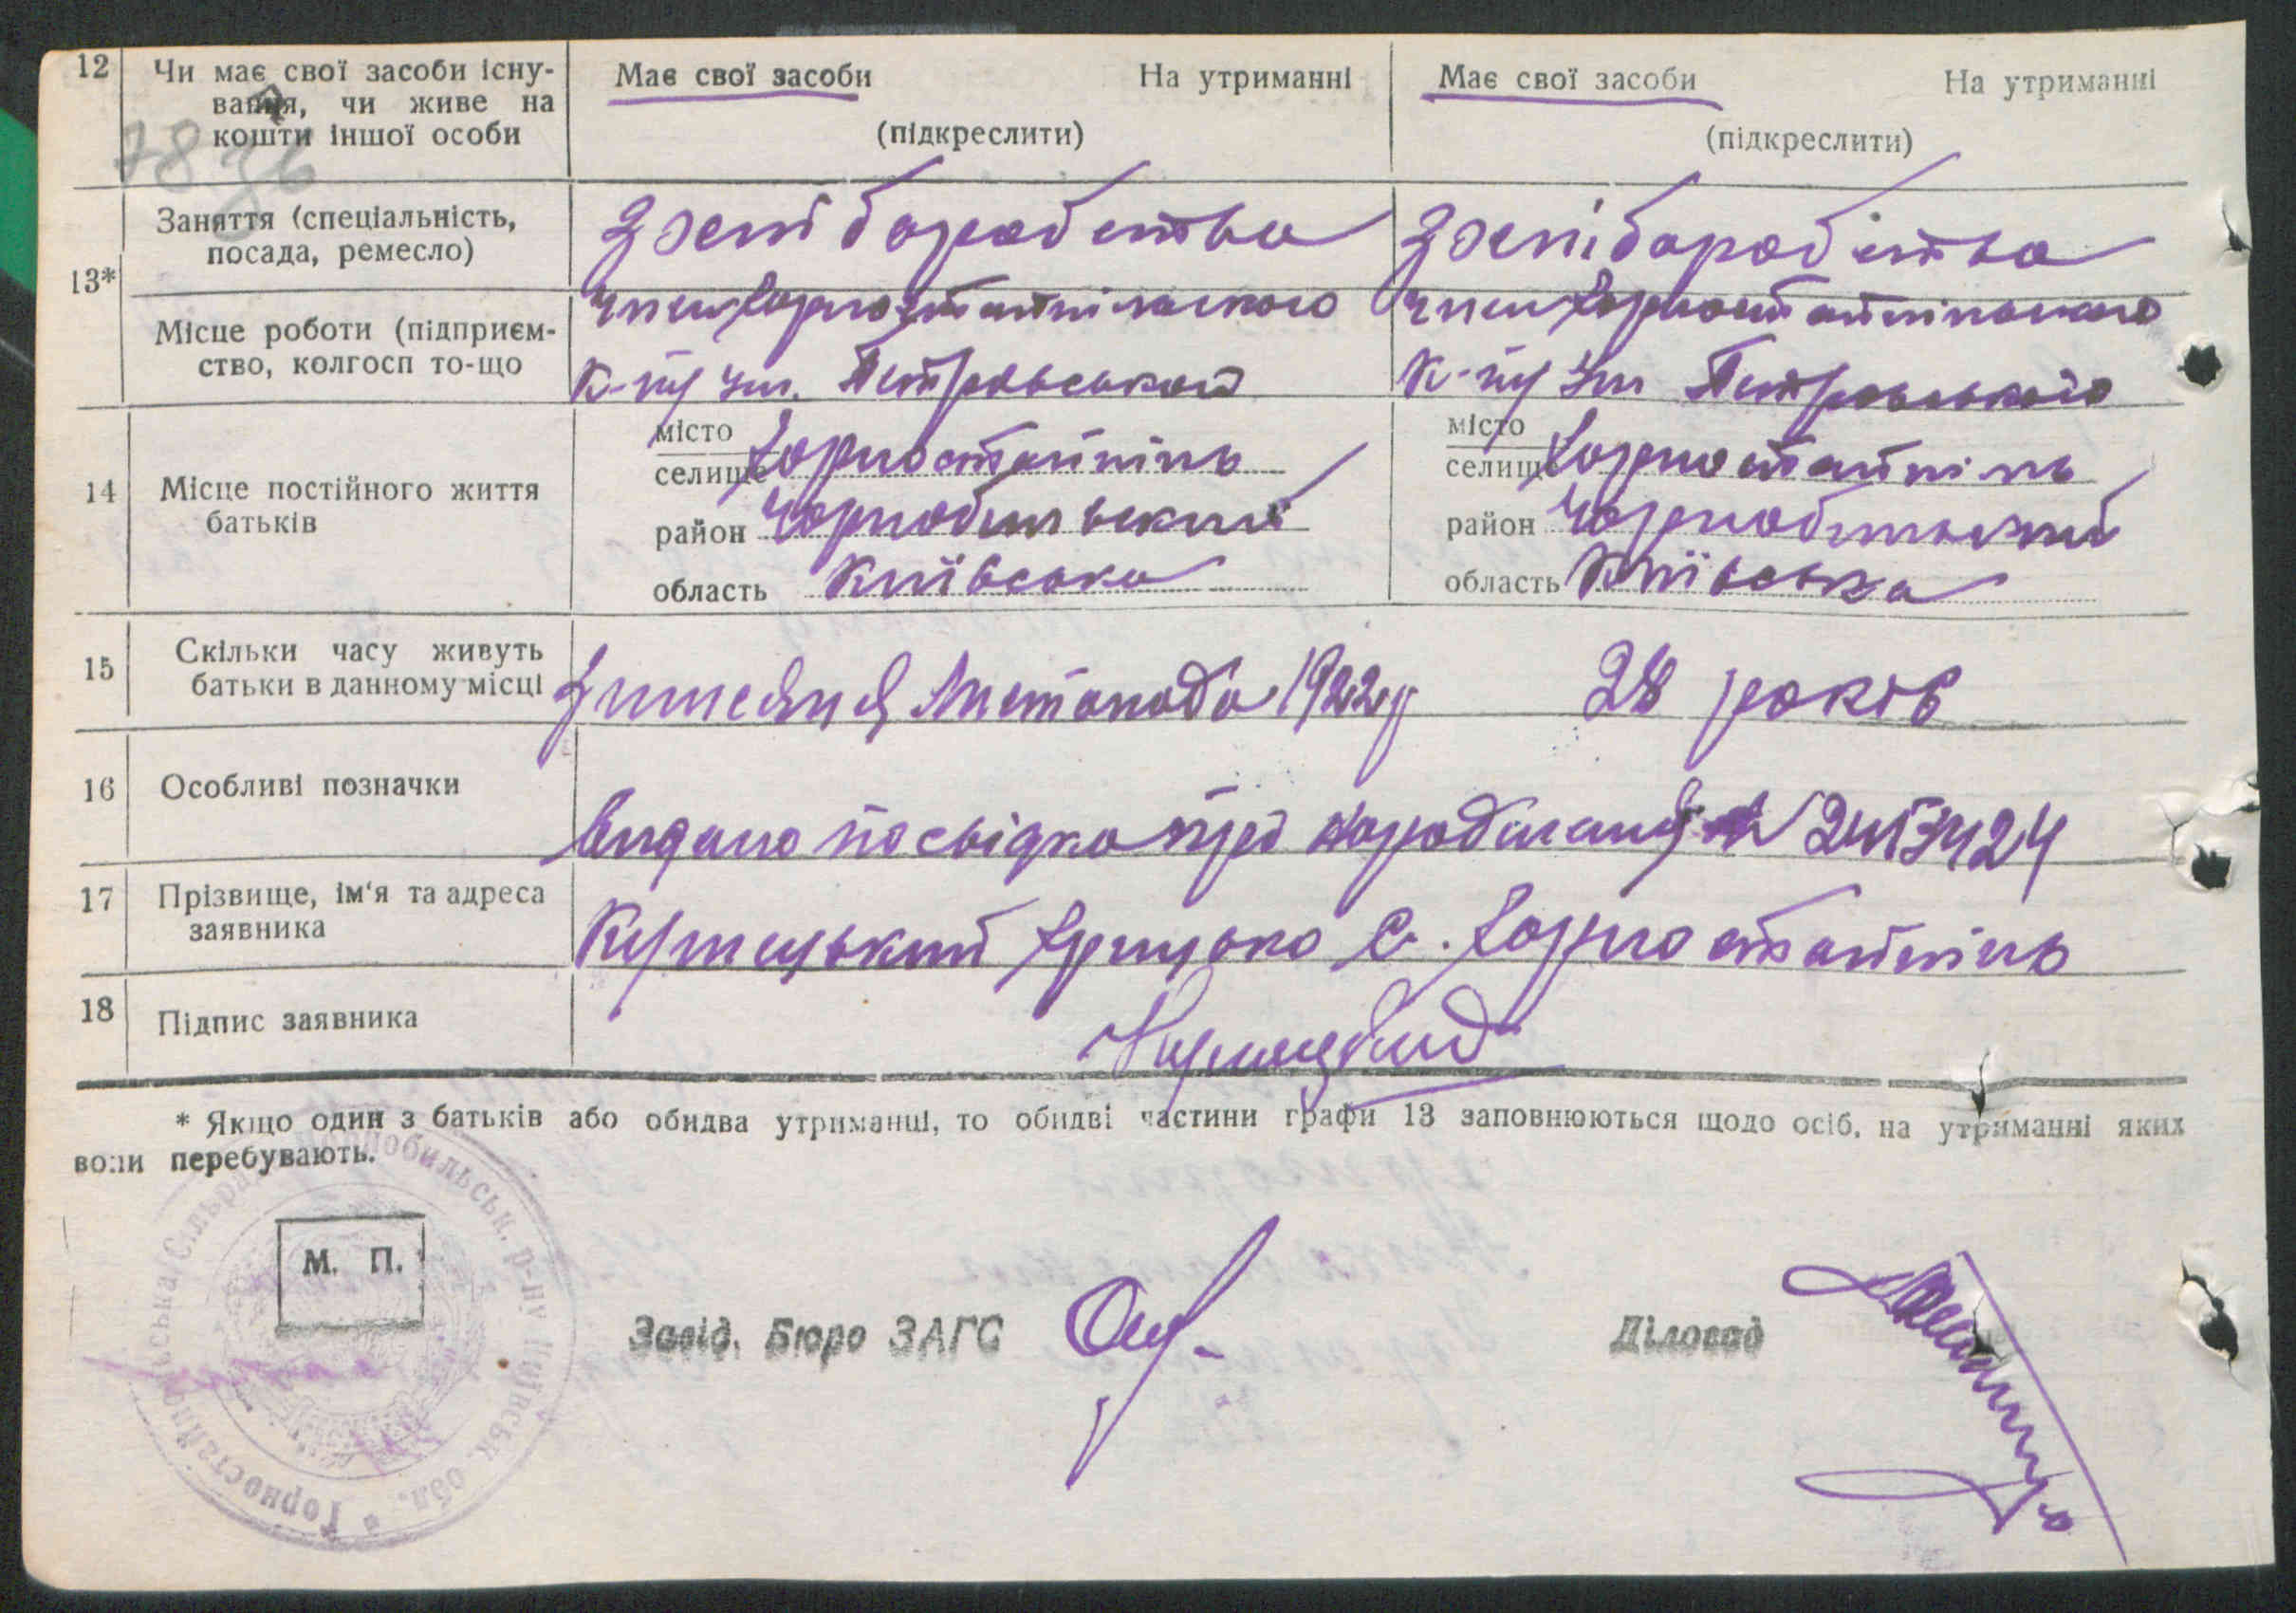 12 Чи має свої засоби існу-
вання, чи живе на
кошти іншої особи
Має свої засоби На утриманні
(підкреслити)
Має свої засоби На утриманні
(підкреслити)
13* Заняття (спеціальність,
посада, ремесло)
з хліборобства
з хліборобства
Місце роботи (підприєм-
ство, колгосп то-що
член Горностайпільского
к-пу ім. Петровського
член Горностайпільского
к-пу ім Петровського
14 Місце постійного життя
батьків
місто
селище Горностайпіль
район Чорнобильский
область Київська
місто
селище Горностайпіль
район Чорнобильский
область Київська
15 Скільки часу живуть
батьки в данному місці
Листопада 1922р 28 років
16 Особливі позначки
Видано посвідка про народження №
17 Прізвище, ім‘я та адреса
заявника
Грицько с. Горностайпіль
18 Підпис заявника
* Якщо один з батьків або обидва утриманці, то обидві частини графи 13 заповнюються щодо осіб, на утриманні яких
вони перебувають.
Горностайпільська Сільрада Чорнобильськ. р-ну Київськ. обл.
М. П.
Завід. Бюро ЗАГС
Діловод